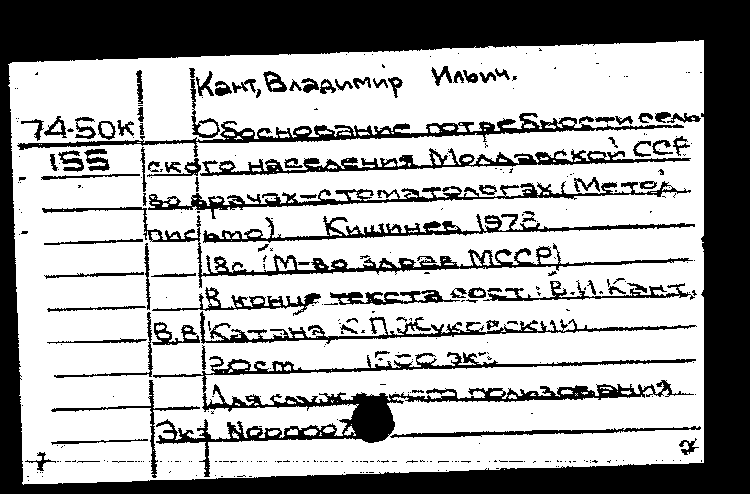 Кант, Владимир Ильич.
74-50к Обоснование потребности сель
155 ского населения Молдавской ССР
во врачах-стоматологах (Метод.
письмо). Кишинев, 1978.
18с. (М-во здрав. МССР)
В конце текста сост.: В.И. Кант,
В.В. Катана, К.П. Жуковский.
20см. 1500 экз.
Для служебного пользования.
Экз. N000007